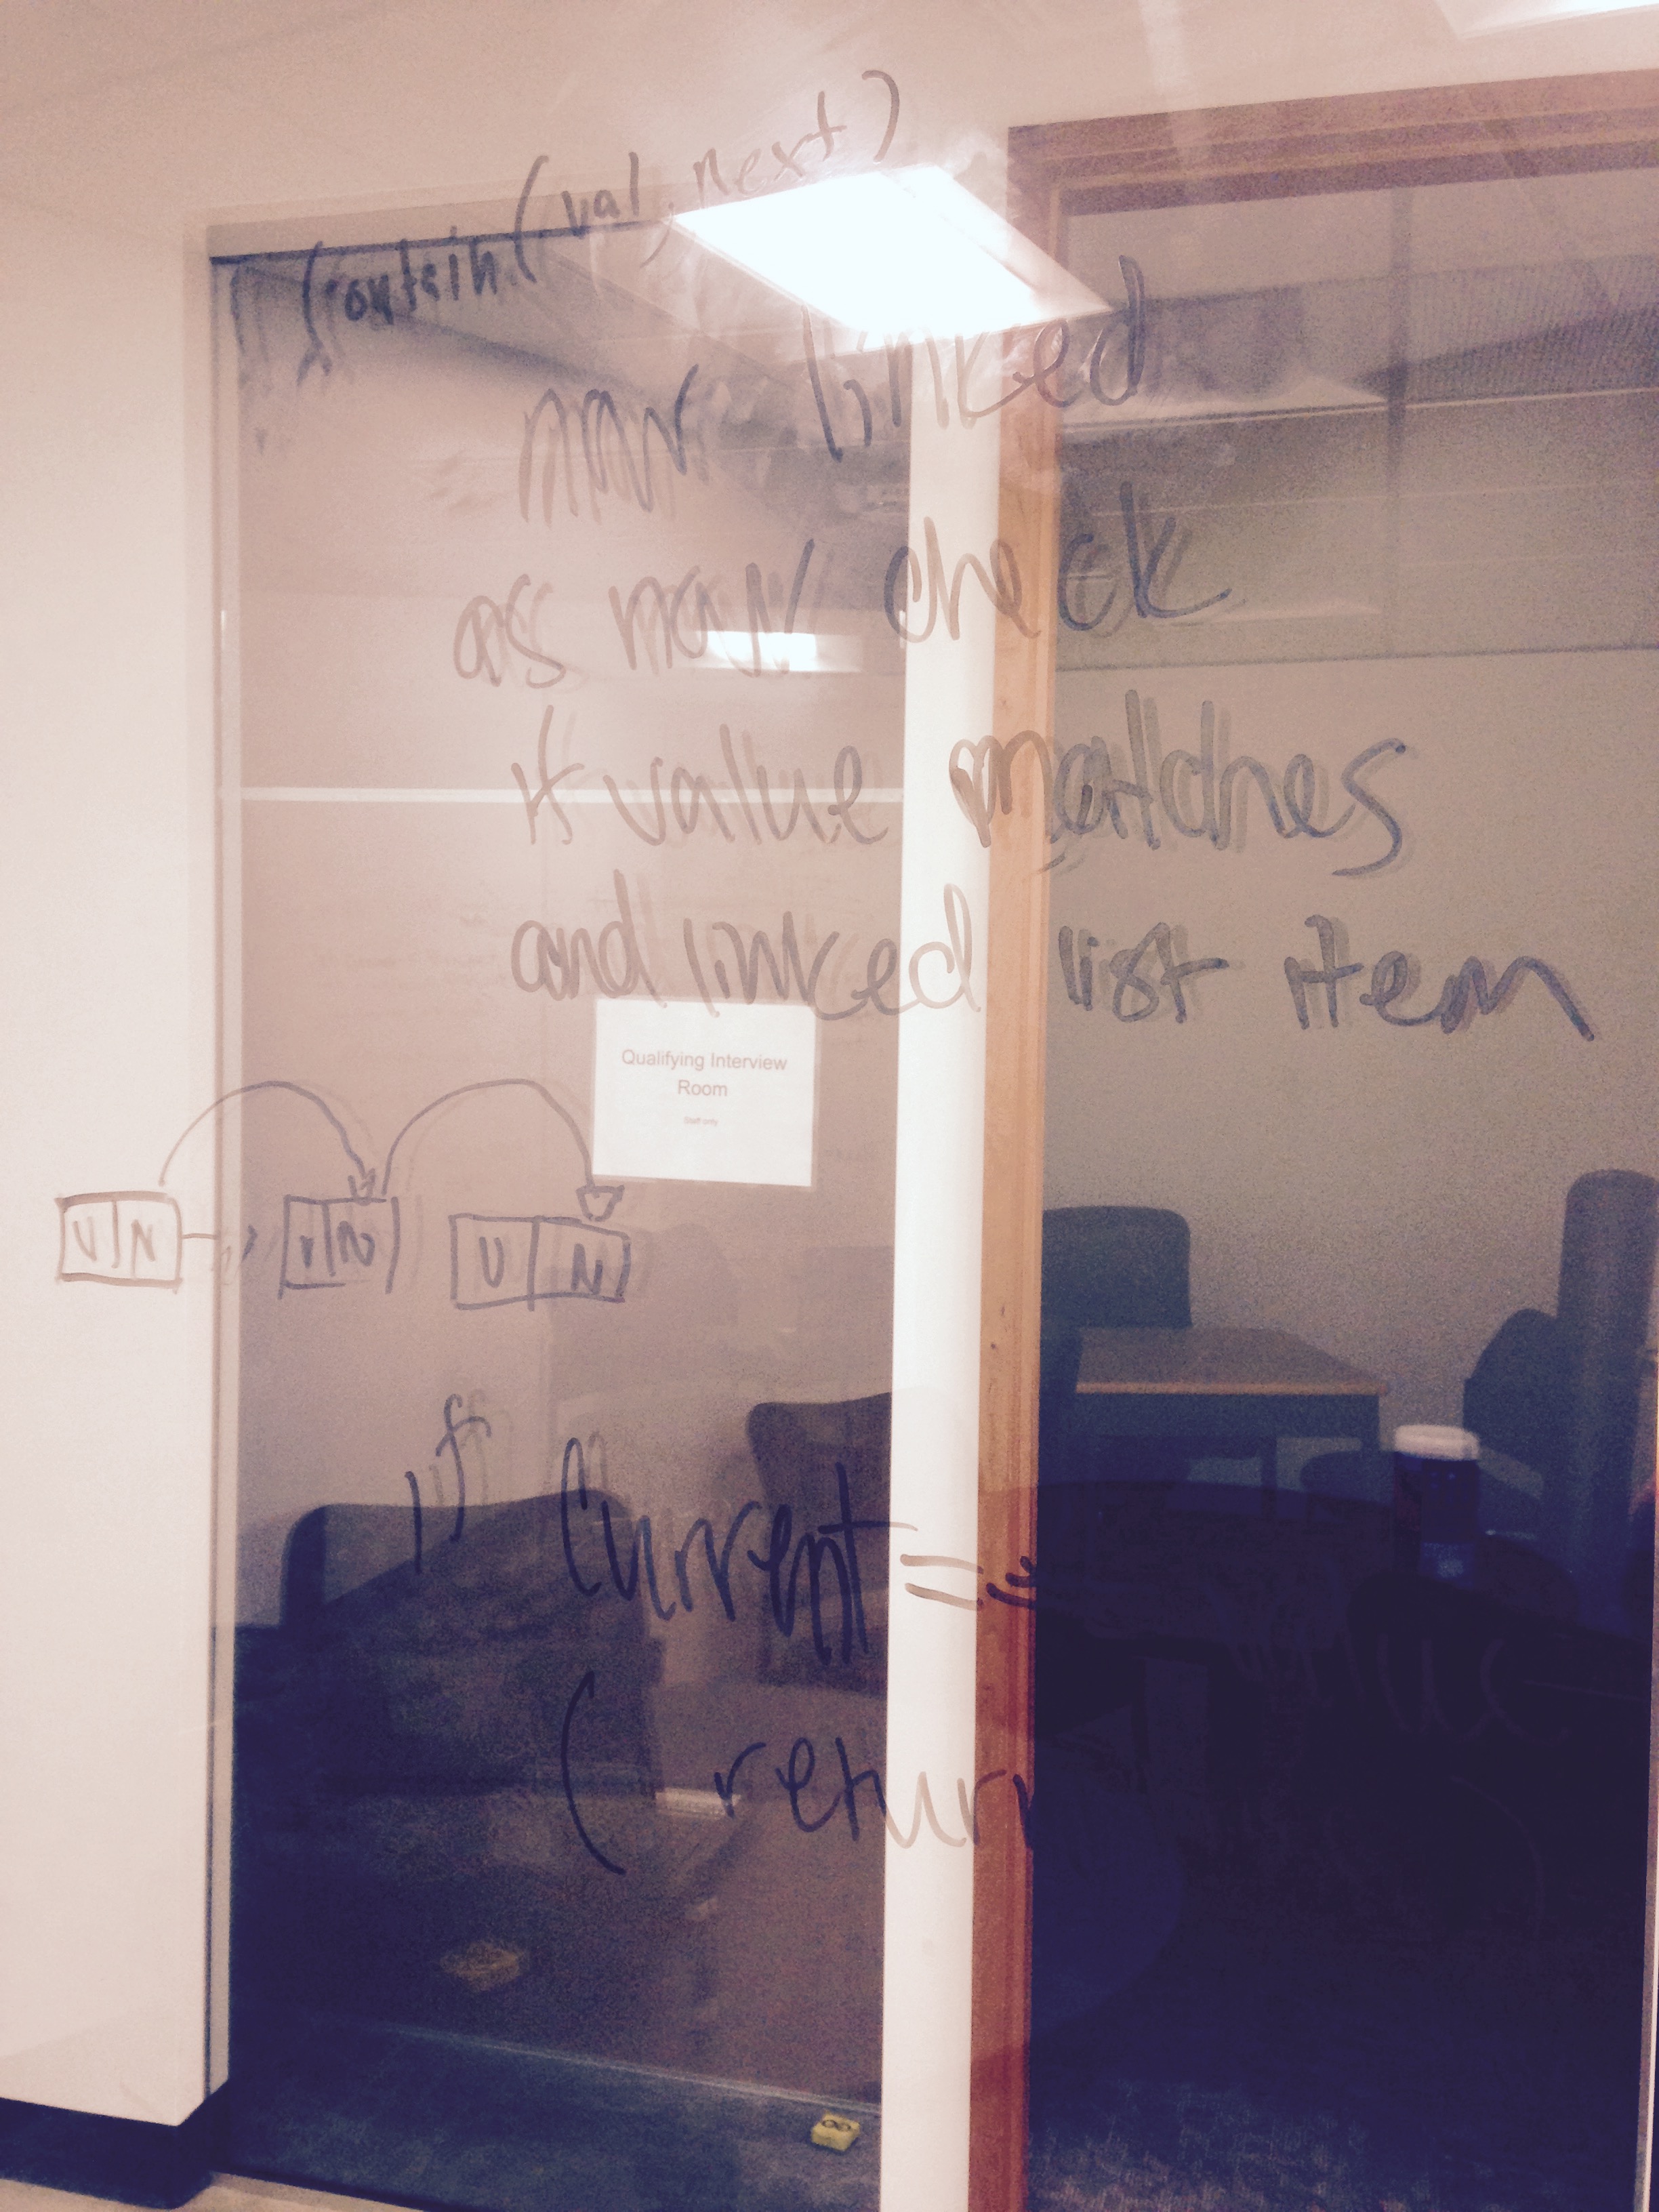 contain(val, next)
linked
as
check
if value matches
and linked list item
Qualifying Interview
Room
Staff only
V N V N V N
if current =
( return